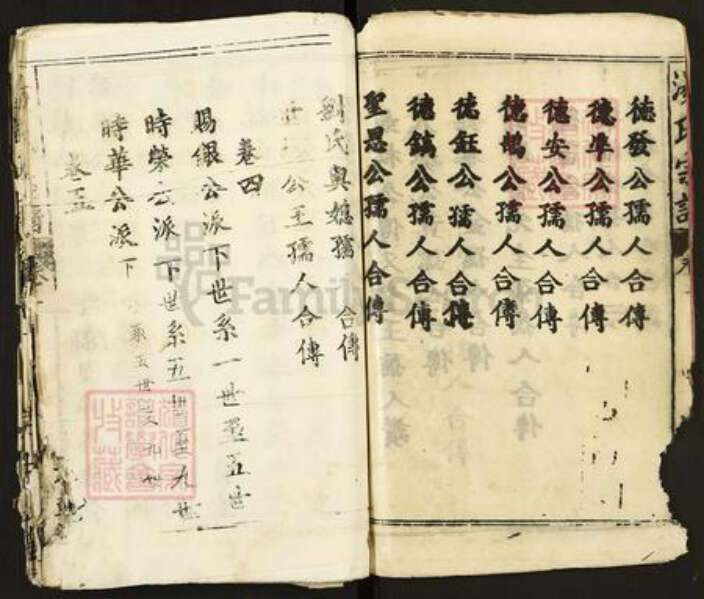 氏宗譜
德發公孺人合傳
德準公孺人合傳
德安公孺人合傳
德公孺人合傳
德鈺公孺人合傳
德鎬公孺人合傳
聖恩公孺人合傳
劉氏與媳孺 合傳
公王孺人合傳
卷四
賜銀公派下世系一世至五世
時榮公派下世系五世至九世
時華公派下 系五世至九世
卷五
FamilySearch